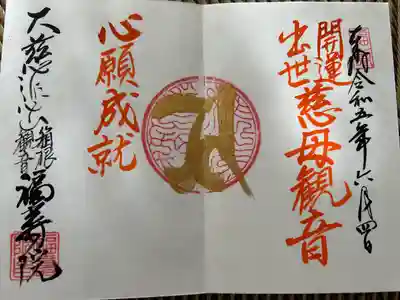 奉拝 令和五年六月四日
開運
出世慈母観音
心願成就
大慈悲山
箱根
観音
福寿院